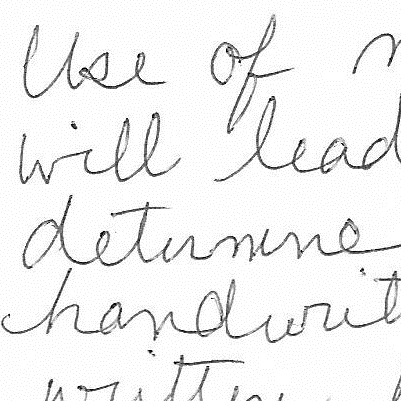 Use of
will lead
determine
handwrit
written